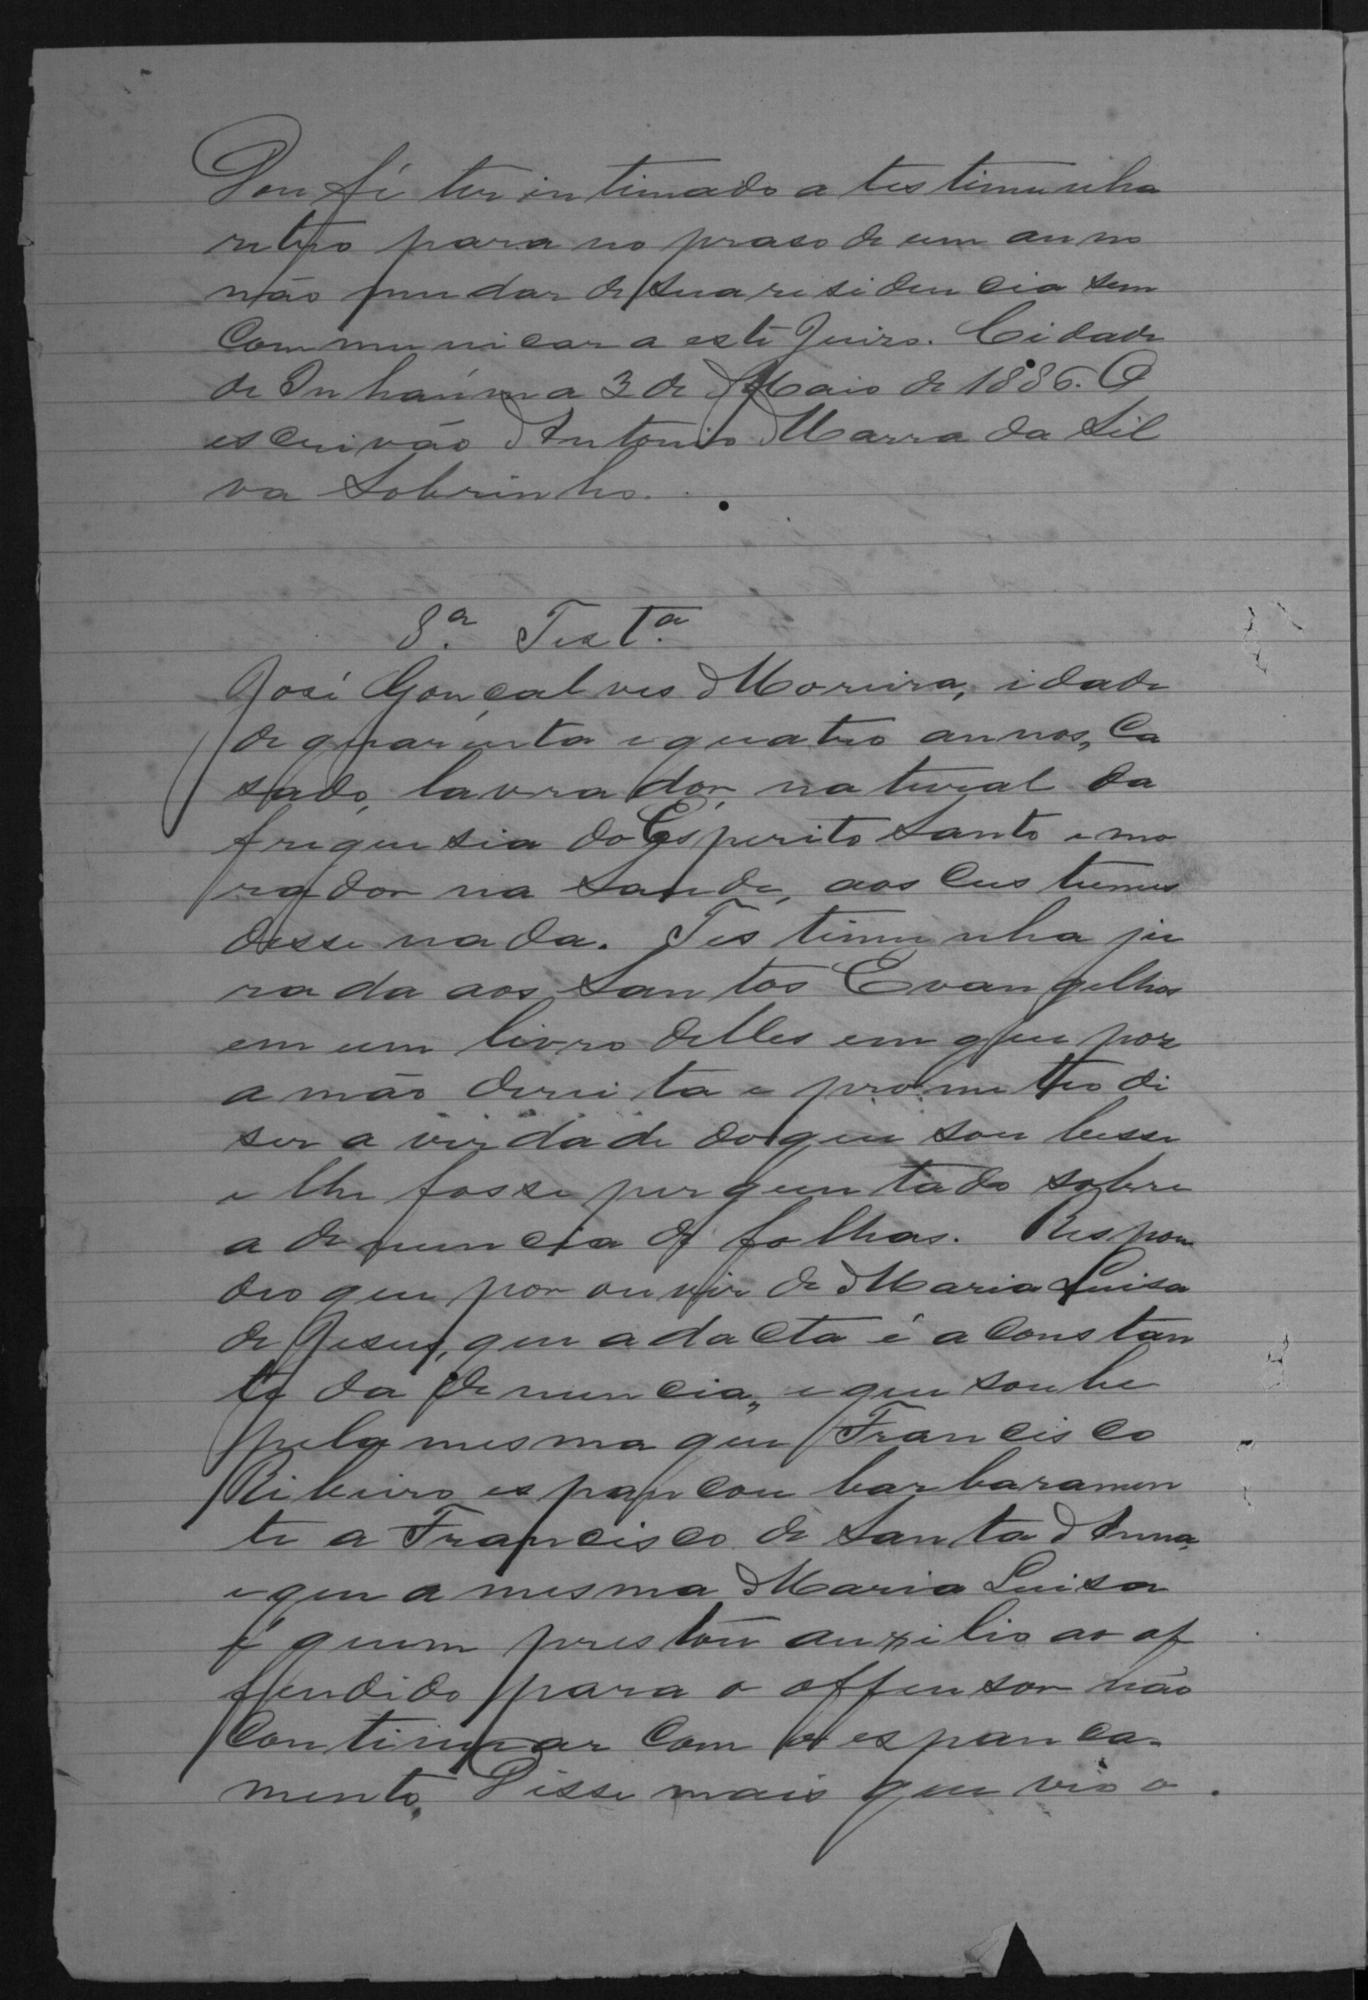 Dou fé ter intimado a testimunha
retro para no praso de um anno
não mudar de sua residencia sem
communicar a este Juiso. Cidade
de Inhaúma 3 de Maio de 1886. O
escrivão Antonio Marra da Sil
va Sobrinho.
8.ª Test.ª
José Gonçalves Moreira, idade
de quarenta e quatro annos, ca
sado, lavrador, natural da
freguesia do Esperito Santo e mo
rador na Saude, aos custumes
disse nada. Testimunha ju
rada aos Santos Evangelhos
em um livro delles em que por
a mão dereita e prometteo di
ser a verdade do que soubesse
e lhe fosse perguntado sobre
a denuncia de folhas. Respon
deo que por ouvir de Maria Luisa
de Jesus, que a dacta é a constan
te da denuncia, e que soube
pela mesma que Francisco
Ribeiro espancou barbaramen
te a Francisco de Santa Anna,
e que a mesma Maria Luisa
é quem prestou auxilio ao of
fendido para o offensor não
continuar com o espanca-
mento. Disse mais que vio o